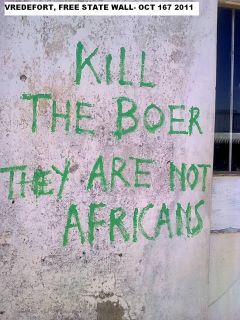 VREDEFORT, FREE STATE WALL- OCT 167 2011
KILL
THE BOER
THEY ARE NOT
AFRICANS